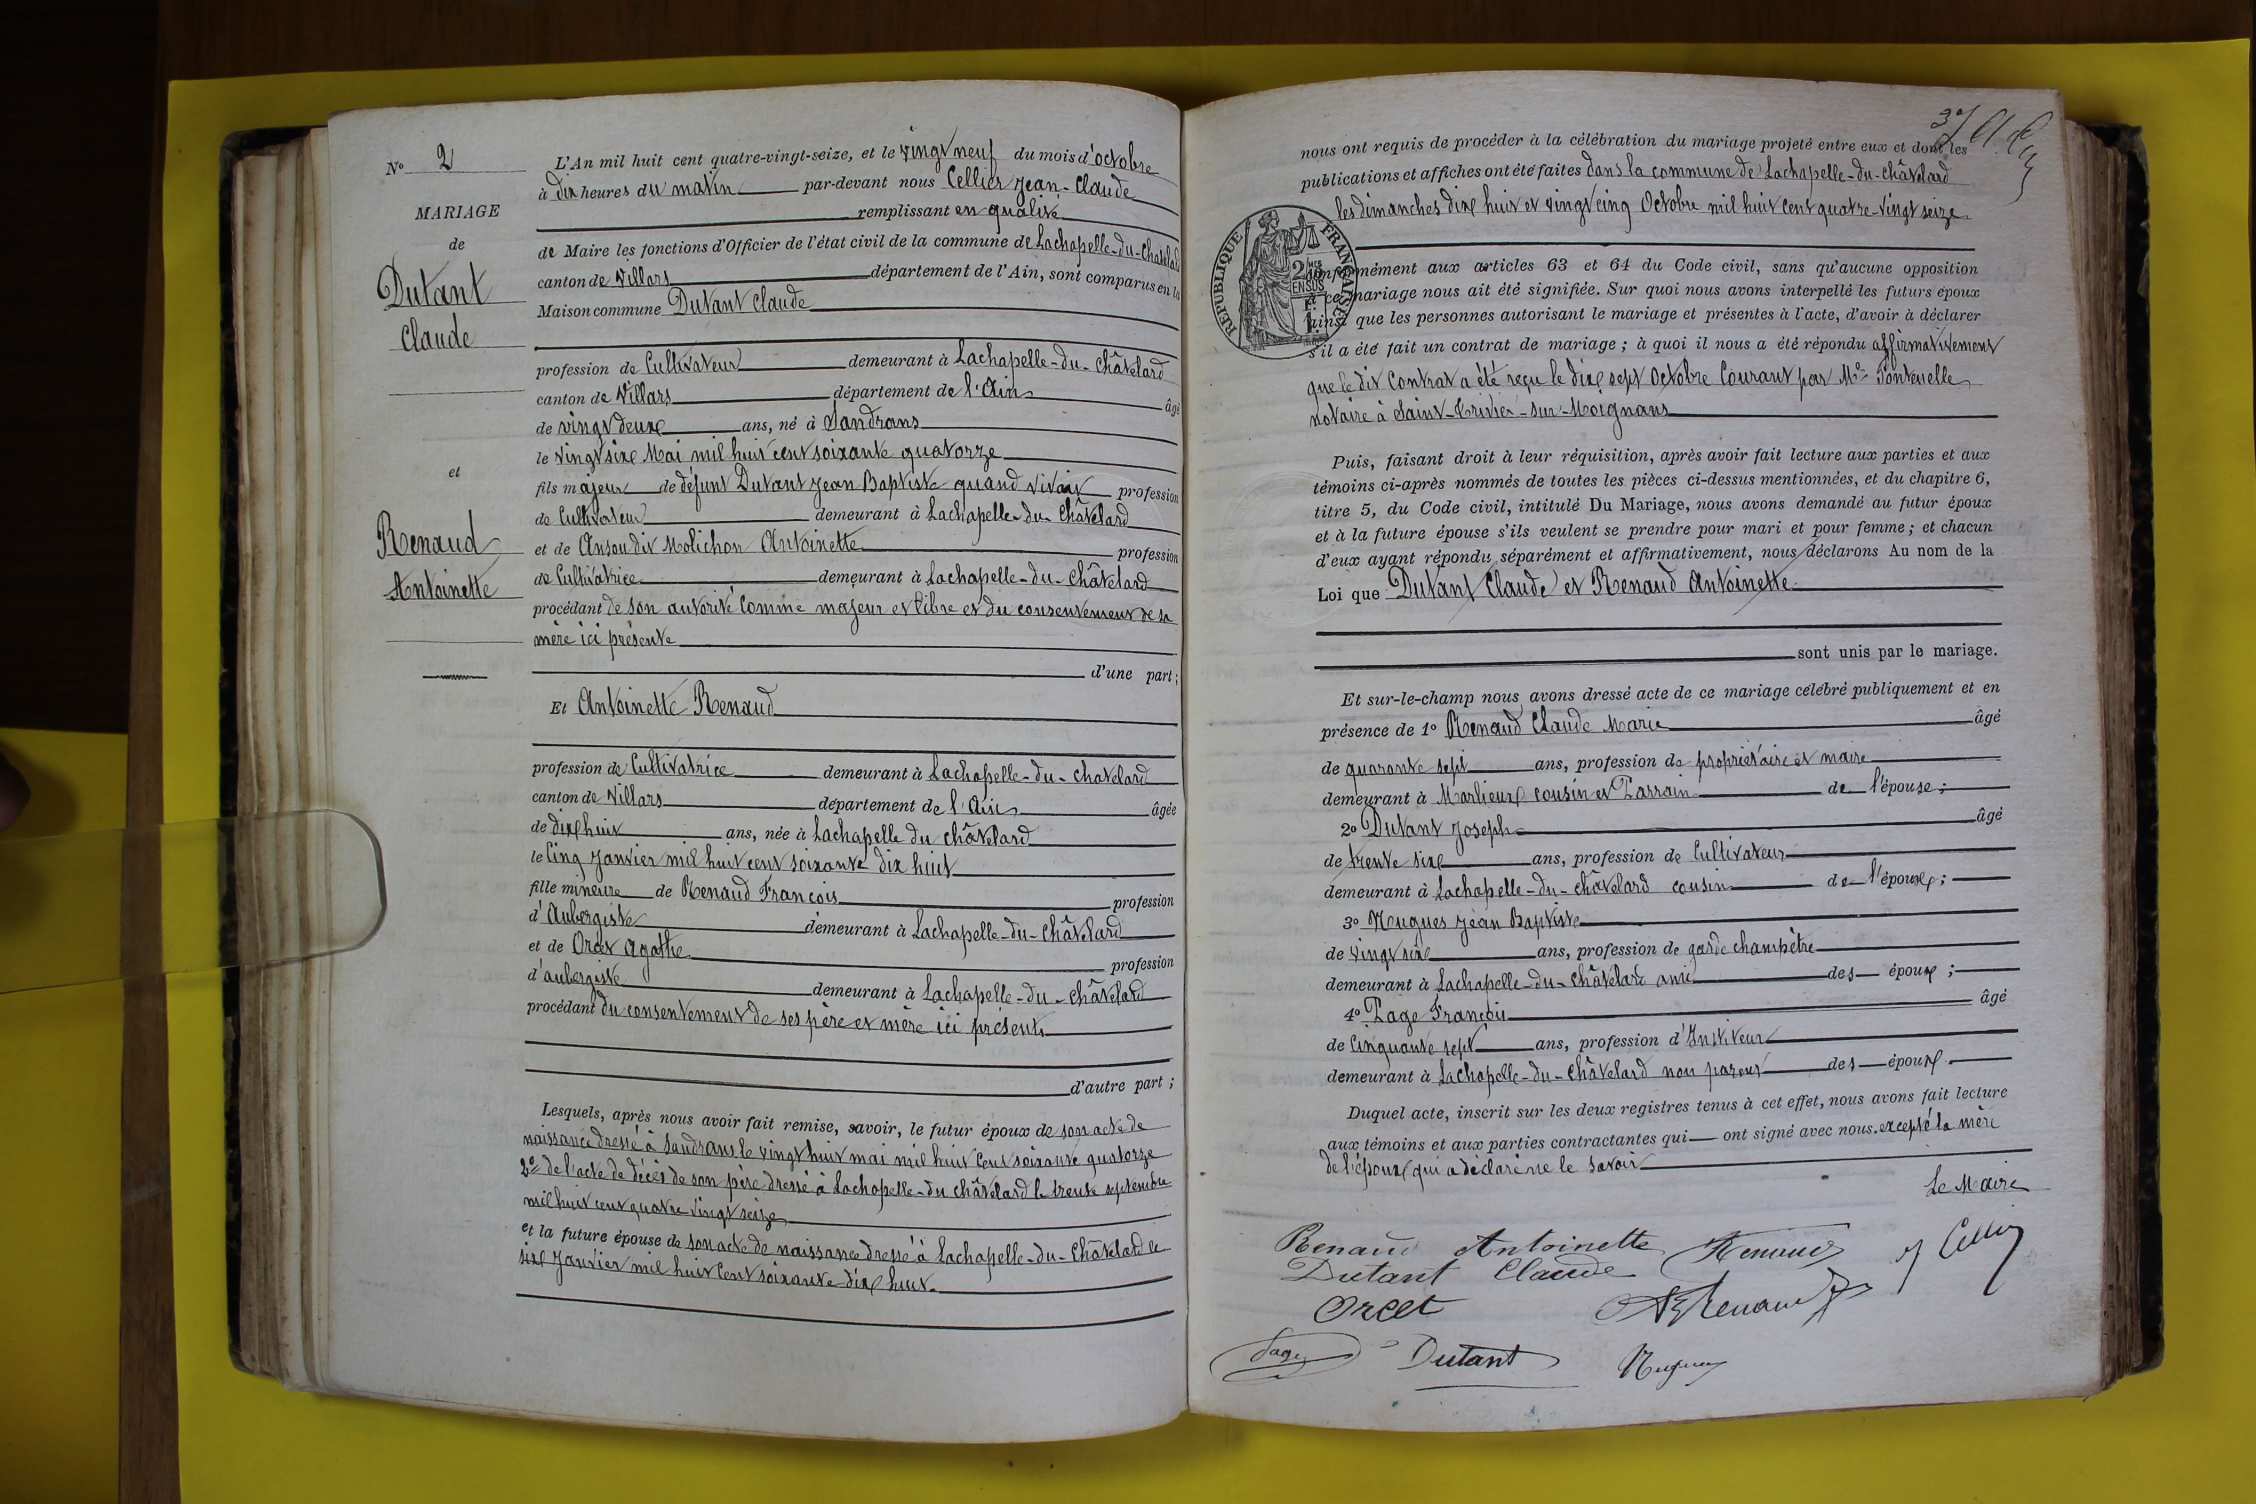 N° 2
MARIAGE
de
Dutant
Claude
et
Renaud
Antoinette
L'An mil huit cent quatre-vingt-seize, et le vingt neuf du mois d'octobre
à dix heures du matin par-devant nous Cellier Jean-Claude
remplissant en qualité
de Maire les fonctions d'Officier de l'état civil de la commune de Lachapelle-du-Chatelard
canton de Villars département de l'Ain, sont comparus en la
Maison commune Dutant Claude
profession de Cultivateur demeurant à Lachapelle-du-Châtelard
canton de Villars département de l'Ain âgé
de vingt deux ans, né à Sandrans
le vingt six Mai mil huit cent soixante quatorze
fils majeur de défunt Dutant Jean Baptiste quand vivait profession
de Cultivateur demeurant à Lachapelle-du-Châtelard
et de Molichon Antoinette profession
de Cultivatrice demeurant à Lachapelle-du-Châtelard
procédant de son autorité comme majeur et libre et du consentement de sa
mère ici présente
d'une part;
Et Antoinette Renaud
profession de Cultivatrice demeurant à Lachapelle-du-chatelard
canton de Villars département de l'Ain âgée
de dix huit ans, née à Lachapelle du Châtelard
le Cinq Janvier mil huit cent soixante dix huit
fille mineure de Renaud François profession
d'Aubergiste demeurant à Lachapelle-du-Châtelard
et de Orcet Agathe profession
d'aubergiste demeurant à Lachapelle-du-Châtelard
procédant du consentement de ses père et mère ici présents
d'autre part;
Lesquels, après nous avoir fait remise, savoir, le futur époux de son acte de
naissance dressé à Sandrans le vingt huit mai mil huit cent soixante quatorze
2° de l'acte de décès de son père dressé à Lachapelle-du Châtelard le trente septembre
mil huit cent quatre vingt seize
et la future épouse de son acte de naissance dressé à Lachapelle-du-Châtelard le
six Janvier mil huit cent soixante dix huit.
37
nous ont requis de procéder à la célébration du mariage projeté entre eux et dont les
publications et affiches ont été faites dans la commune de Lachapelle-du-Châtelard
les dimanches dix huit et vingt cinq Octobre mil huit cent quatre-vingt seize
RÉPUBLIQUE FRANÇAISE
2
EN SUS
conformément aux articles 63 et 64 du Code civil, sans qu'aucune opposition
à ce mariage nous ait été signifiée. Sur quoi nous avons interpellé les futurs époux
ainsi que les personnes autorisant le mariage et présentes à l'acte, d'avoir à déclarer
s'il a été fait un contrat de mariage; à quoi il nous a été répondu affirmativement
que le dit Contrat a été reçu le dix sept Octobre Courant par Me Fontenelle
notaire à Saint-Trivier-sur-Moignans
Puis, faisant droit à leur réquisition, après avoir fait lecture aux parties et aux
témoins ci-après nommés de toutes les pièces ci-dessus mentionnées, et du chapitre 6,
titre 5, du Code civil, intitulé Du Mariage, nous avons demandé au futur époux
et à la future épouse s'ils veulent se prendre pour mari et pour femme; et chacun
d'eux ayant répondu séparément et affirmativement, nous déclarons Au nom de la
Loi que Dutant Claude et Renaud Antoinette
sont unis par le mariage.
Et sur-le-champ nous avons dressé acte de ce mariage célébré publiquement et en
présence de 1° Renaud Claude Marie âgé
de quarante sept ans, profession de propriétaire et maire
demeurant à Marlieux cousin et Parrain de l'épouse;
2° Dutant Joseph âgé
de trente six ans, profession de Cultivateur
demeurant à Lachapelle-du-Châtelard cousin de l'époux;
3° Hugues Jean Baptiste
de vingt six ans, profession de garde champêtre
demeurant à Lachapelle-du-Châtelard ami des époux;
4° Page François âgé
de Cinquante sept ans, profession d'Instituteur
demeurant à Lachapelle-du-Châtelard non parent des époux.
Duquel acte, inscrit sur les deux registres tenus à cet effet, nous avons fait lecture
aux témoins et aux parties contractantes qui ont signé avec nous. excepté la mère
de l'époux qui a déclaré ne le savoir
Le Maire
Renaud Antoinette Renaud J Cellier
Dutant Claude
Orcet Renaud
Page Dutant Hugues